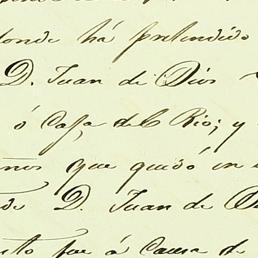 donde há pretendido
D. Juan de Dios
ó Casa del Rio; y
que quedó en
de D. Juan de
fue á Causa de